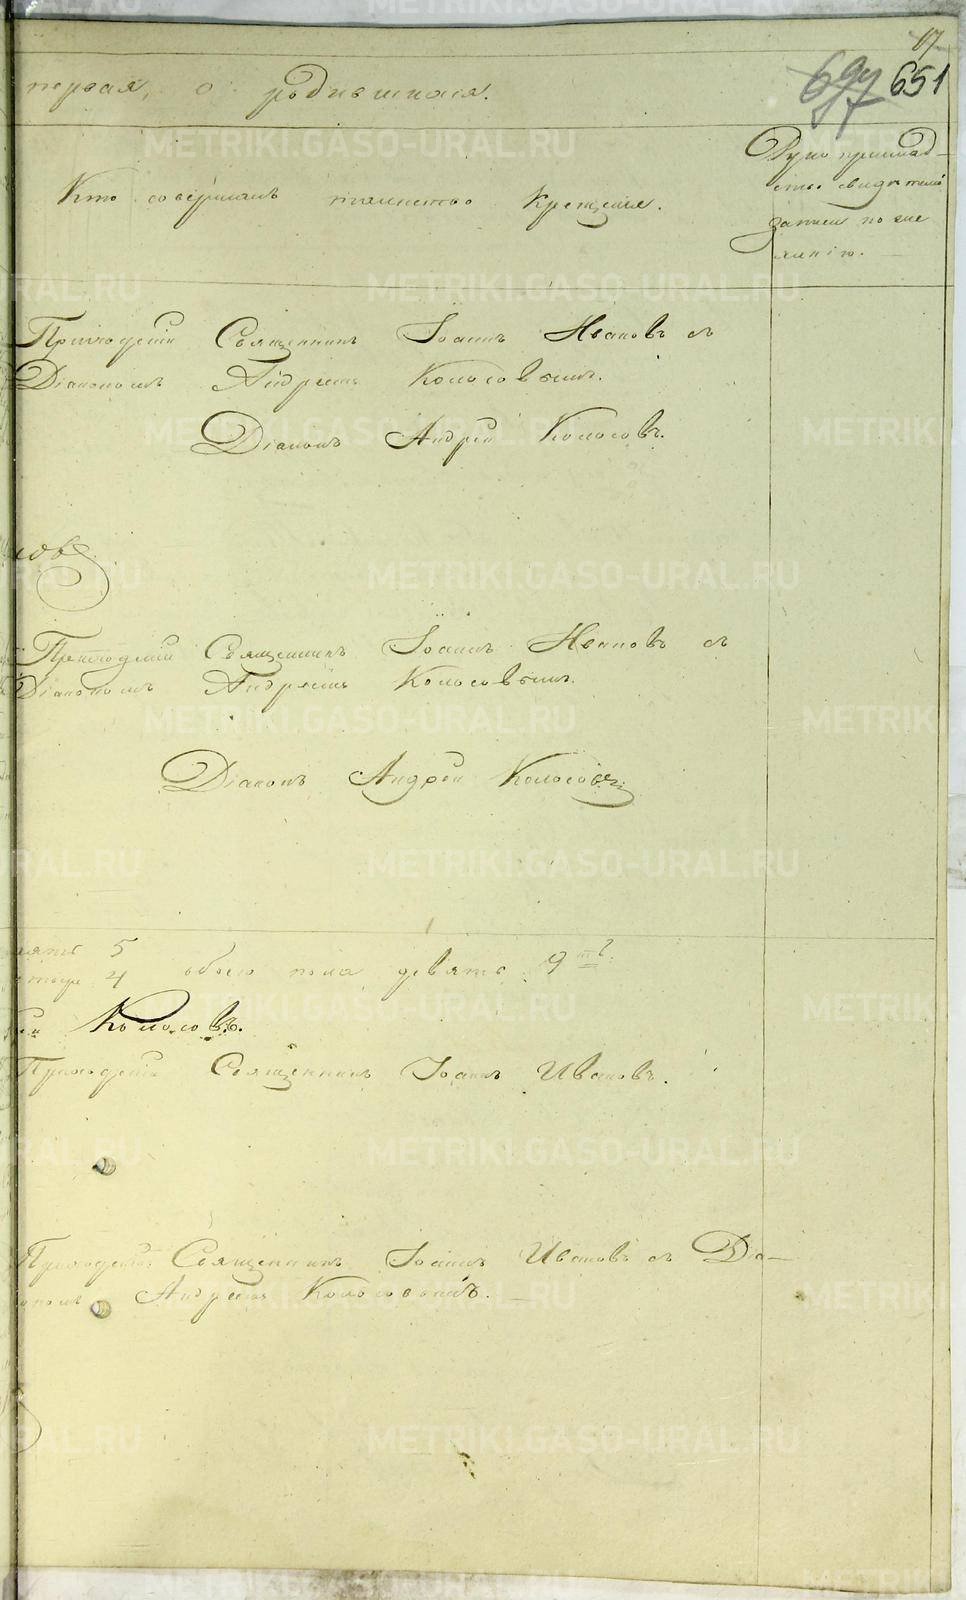 17
651
первая, о родившихся.
Кто совершалъ таинство крещенія.
Руко приклад-
ство свидѣтелей
записи по же
ланію.
Приходскій Священникъ Іоаннъ Ивановъ съ
Діакономъ Андреемъ Колосовымъ.
Діаконъ Андрей Колосовъ.
Приходскій Священникъ Іоаннъ Ивановъ съ
Діакономъ Андреемъ Колосовымъ.
Діаконъ Андрей Колосовъ
5
4 обоего пола девять 9
Колосовъ.
Приходскій Священникъ Іоаннъ Ивановъ.
Приходскій Священникъ Іоаннъ Ивановъ съ Діа-
кономъ Андреемъ Колосовымъ.
METRIKI.GASO-URAL.RU